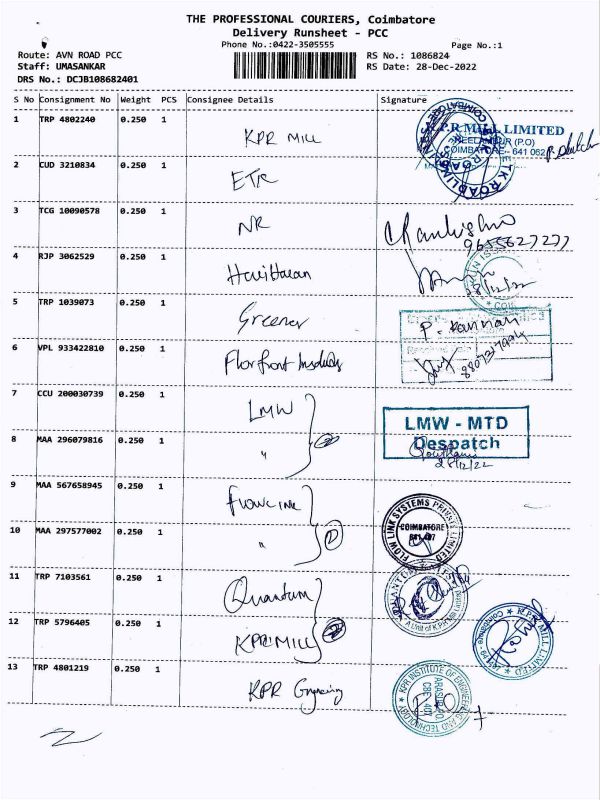 THE PROFESSIONAL COURIERS, Coimbatore
Delivery Runsheet - PCC
Phone No.:0422-3505555 Page No.:1
Route: AVN ROAD PCC RS No.: 1086824
Staff: UMASANKAR RS Date: 28-Dec-2022
DRS No.: DCJB108682401
S No Consignment No Weight PCS Consignee Details Signature
1 TRP 4802240 0.250 1 KPR MILL K.P.R MILL LIMITED
NEELAMBUR (P.O)
COIMBATORE - 641 062
2 CUD 3210834 0.250 1 ETR
3 TCG 10090578 0.250 1 NR
9655627277
4 RJP 3062529 0.250 1 Hariharan 28/12/22
5 TRP 1039073 0.250 1 Greener P. Kannan
6 VPL 933422810 0.250 1
7 CCU 200030739 0.250 1 LMW LMW - MTD
Despatch
8 MAA 296079816 0.250 1 " 28/12/22
9 MAA 567658945 0.250 1 Flowlink FLOW LINK SYSTEMS PRIVATE LIMITED
COIMBATORE
641 407
10 MAA 297577002 0.250 1 "
11 TRP 7103561 0.250 1 Quantum A Unit of K.P.R Mill
12 TRP 5796405 0.250 1 KPR MILL K.P.R. MILL LIMITED
13 TRP 4801219 0.250 1 KPR KPR INSTITUTE OF ENGINEERING AND TECHNOLOGY